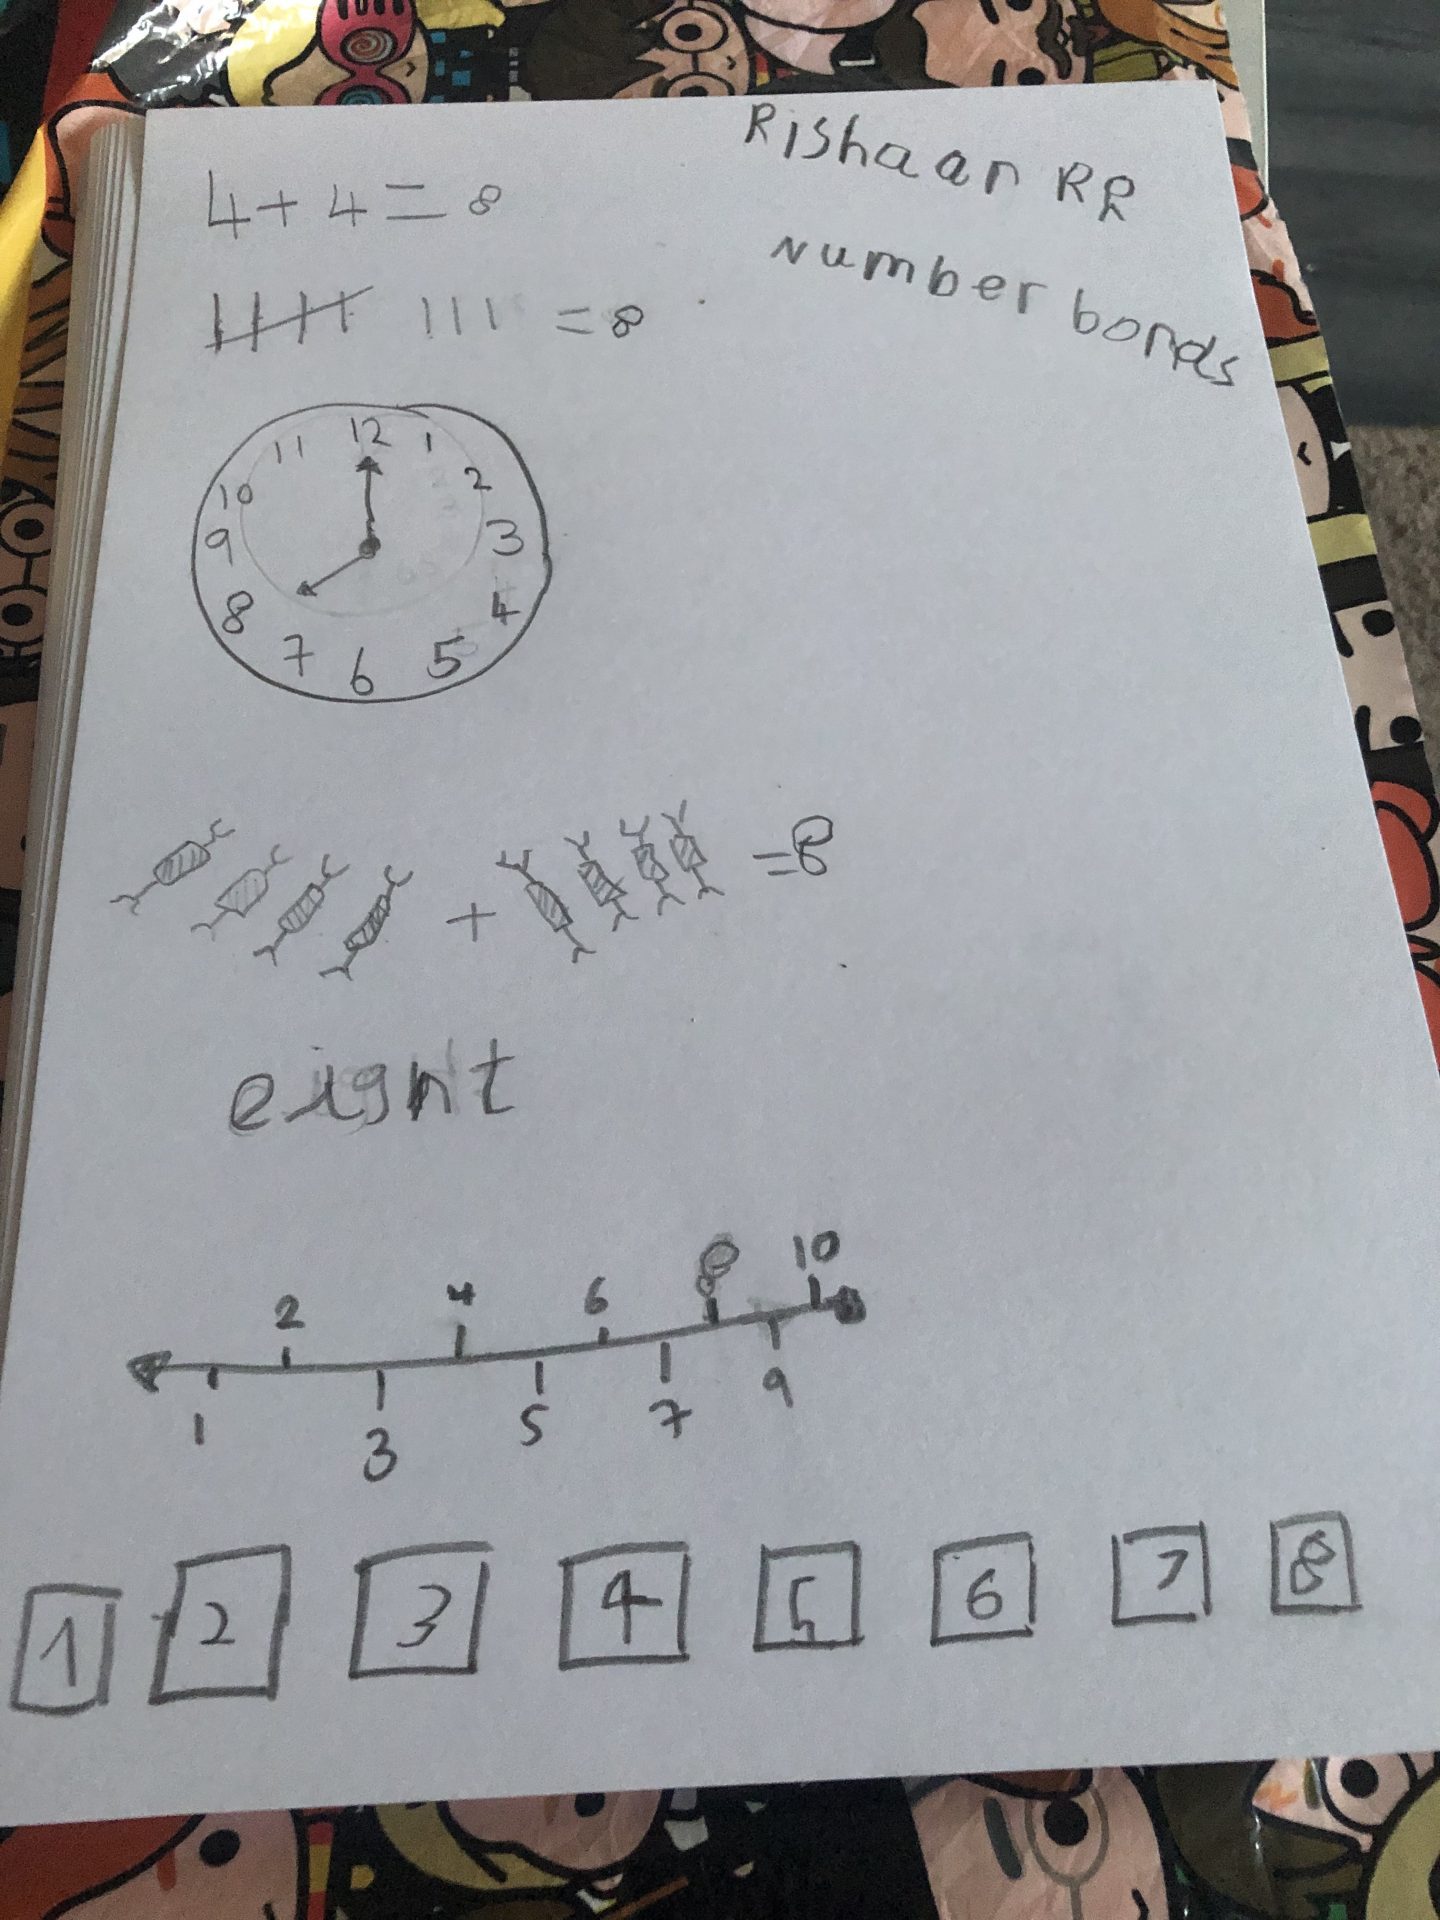 Rishaan RR
Number bonds
4 + 4 = 8
= 8
11 12 1
10 2
9 3
8 4
7 6 5
+ = 8
eight
2 4 6 8 10
1 3 5 7 9
1 2 3 4 5 6 7 8